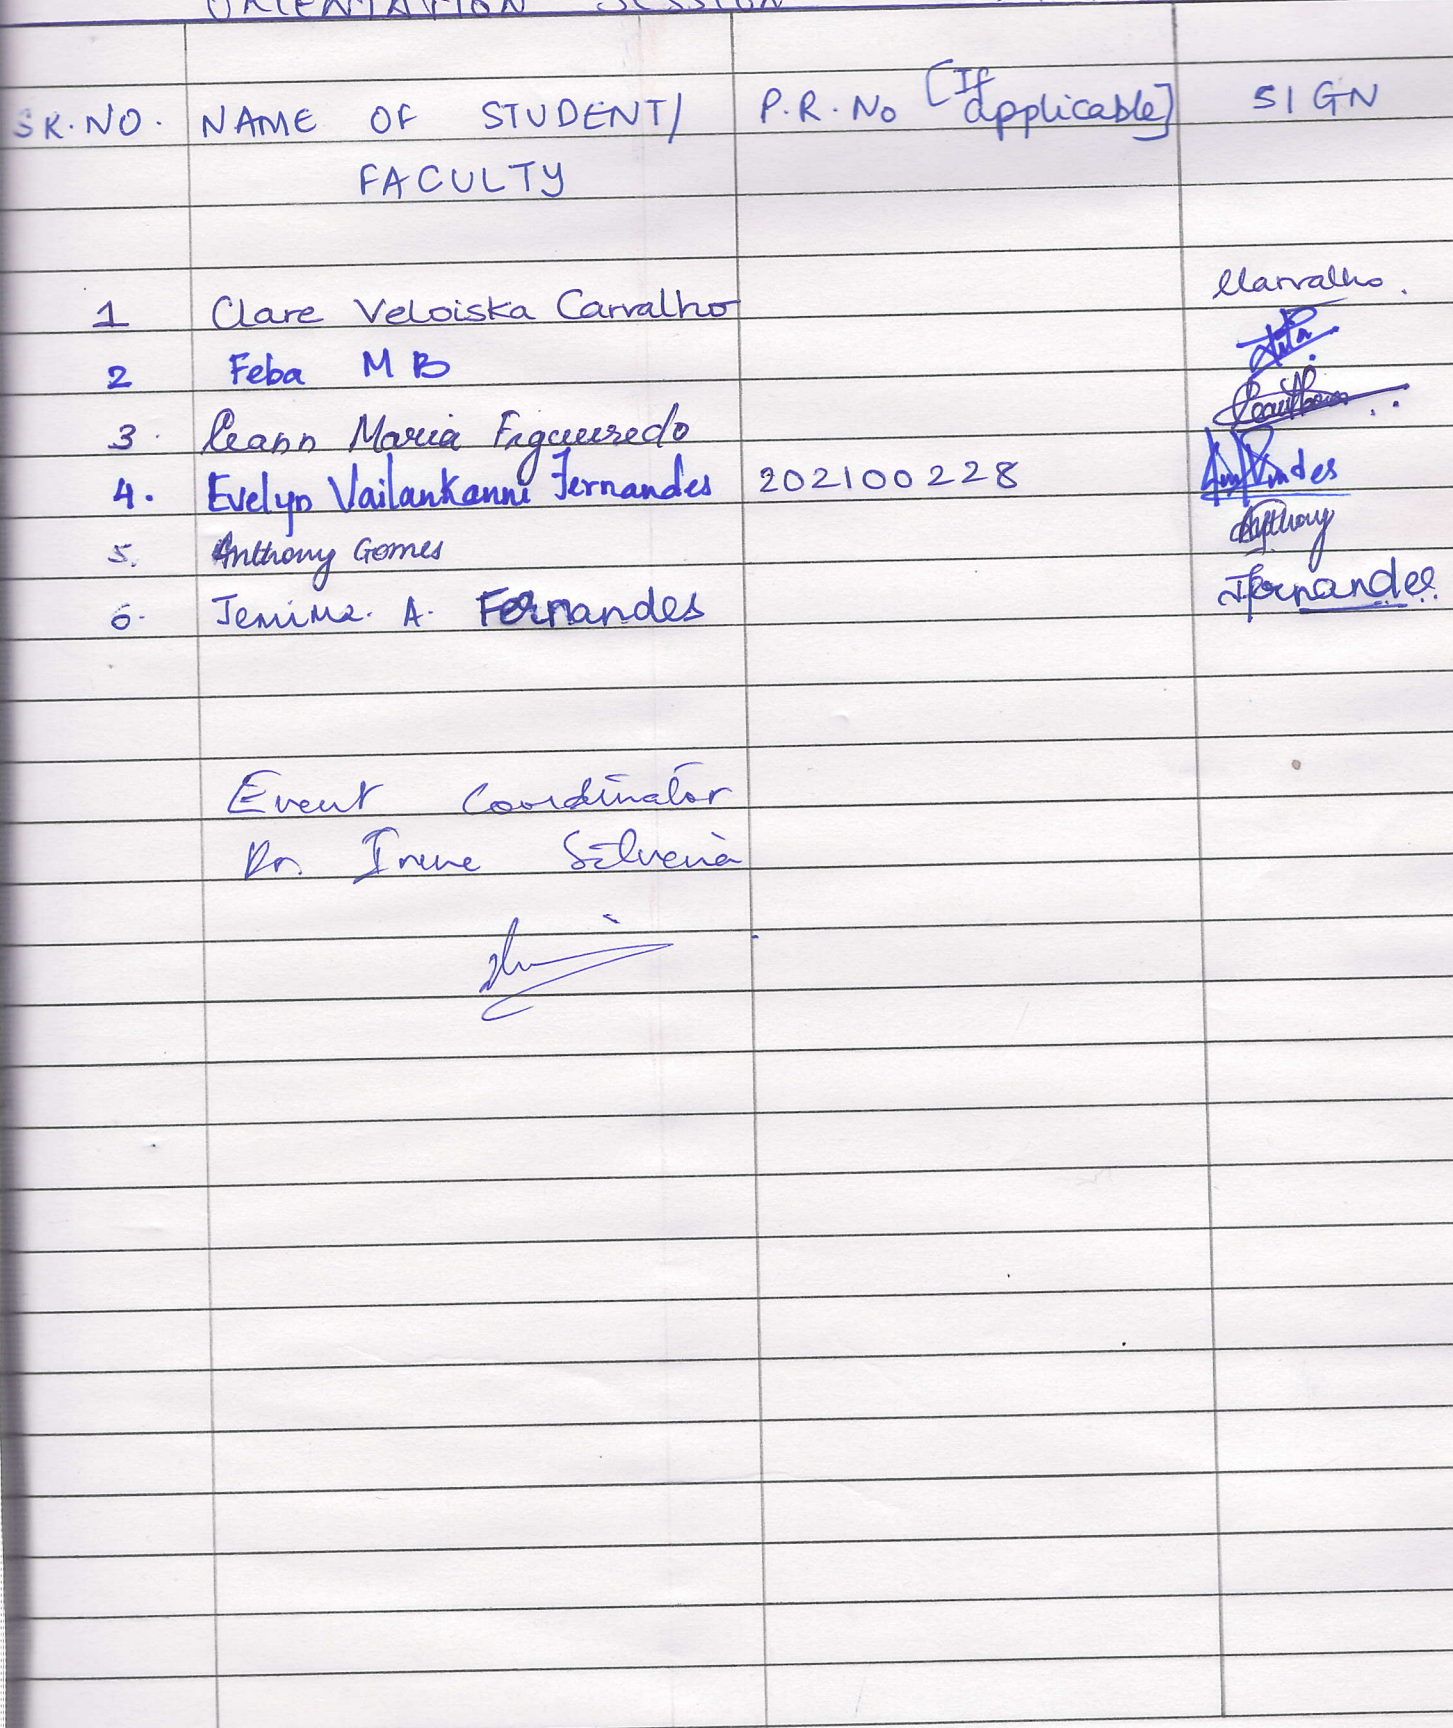 ORIENTATION SESSION
SR.NO. NAME OF STUDENT/ FACULTY P.R.No [If applicable] SIGN
1 Clare Veloiska Carvalho Carvalho.
2 Feba M B
3. Leann Maria Figueiredo
4. Evelyn Vailankanni Fernandes 202100228
5. Anthony Gomes Anthony
6. Jemima. A. Fernandes JFernandes
Event Coordinator
Dr. Irene Silveira